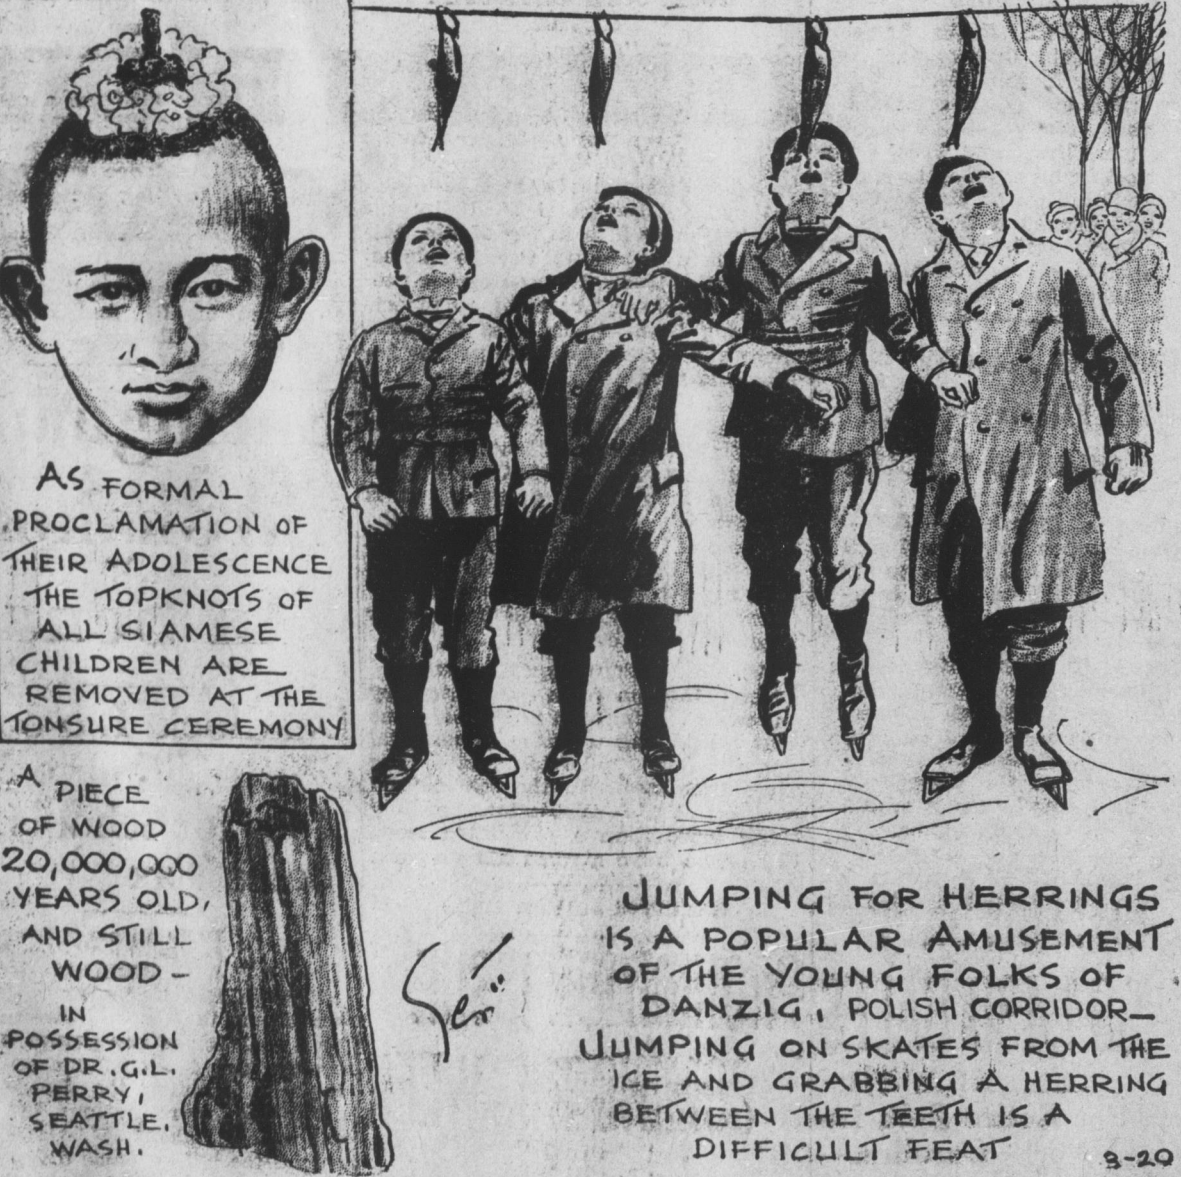 AS FORMAL
PROCLAMATION OF
THEIR ADOLESCENCE
THE TOPKNOTS OF
ALL SIAMESE
CHILDREN ARE
REMOVED AT THE
TONSURE CEREMONY
A PIECE
OF WOOD
20,000,000
YEARS OLD,
AND STILL
WOOD -
IN
POSSESSION
OF DR. G. L.
PERRY,
SEATTLE,
WASH.
JUMPING FOR HERRINGS
IS A POPULAR AMUSEMENT
OF THE YOUNG FOLKS OF
DANZIG, POLISH CORRIDOR—
JUMPING ON SKATES FROM THE
ICE AND GRABBING A HERRING
BETWEEN THE TEETH IS A
DIFFICULT FEAT
3-20